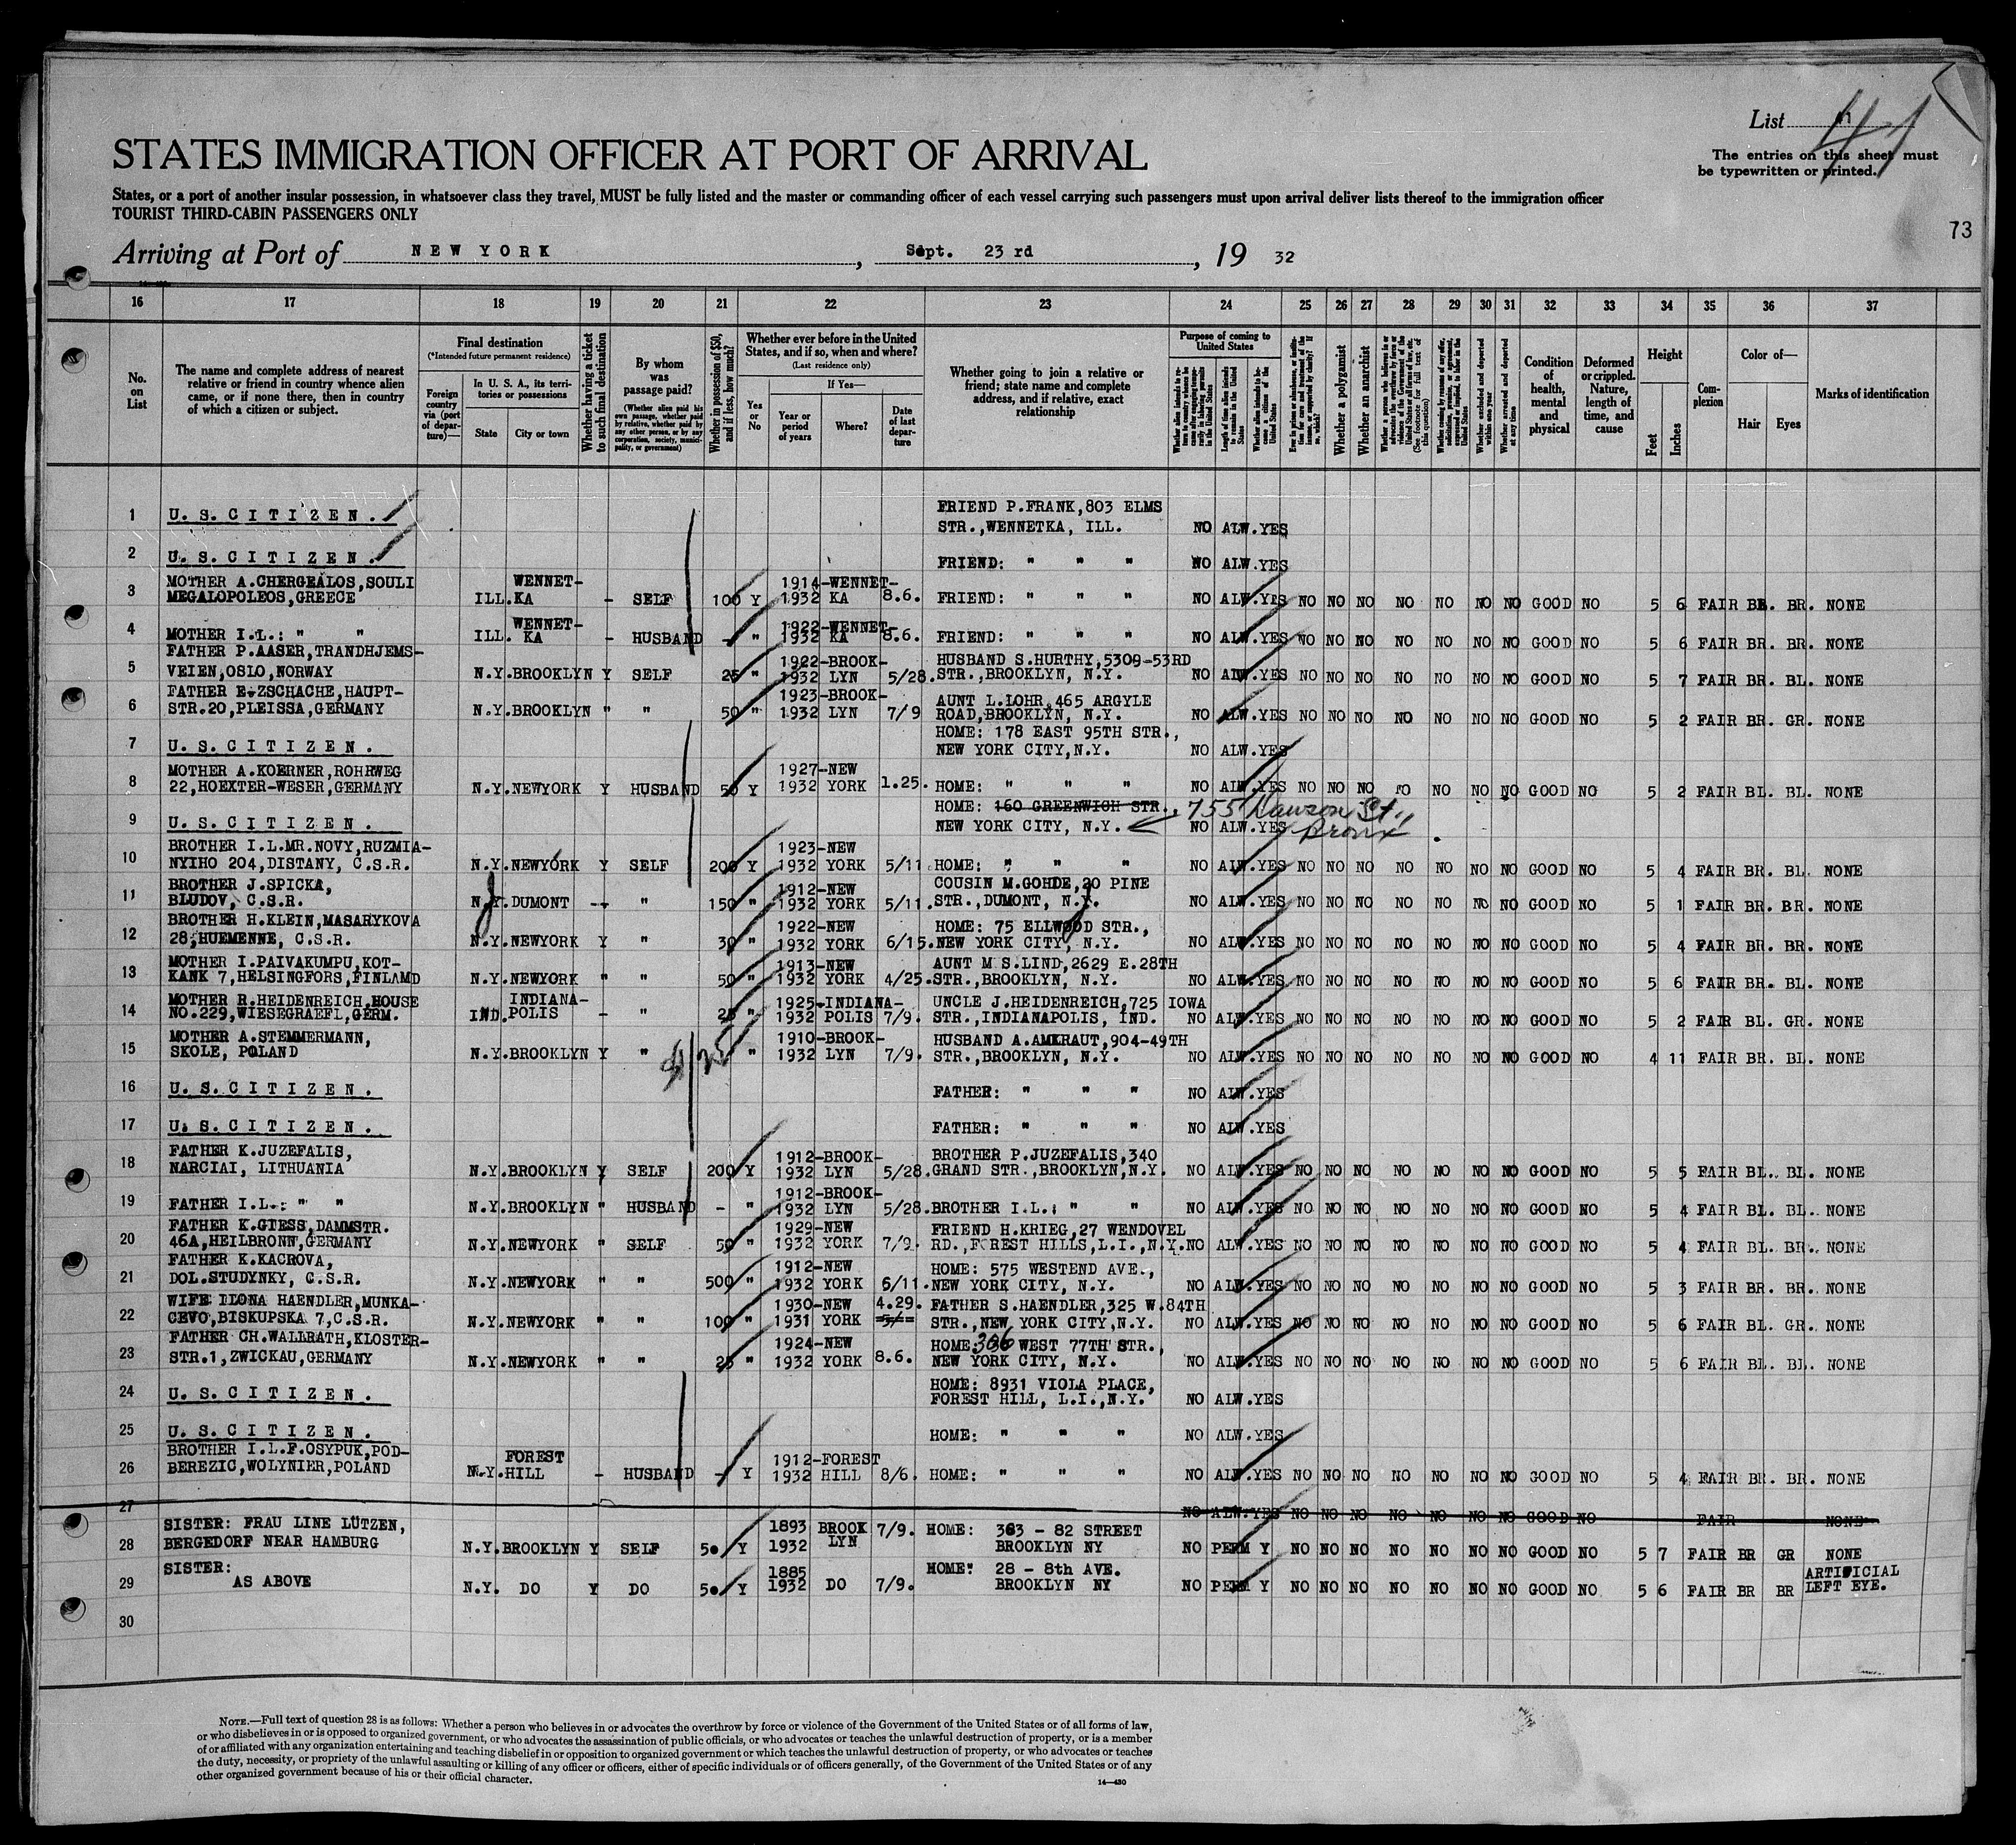 List 41
STATES IMMIGRATION OFFICER AT PORT OF ARRIVAL
The entries on this sheet must
be typewritten or printed.
States, or a port of another insular possession, in whatsoever class they travel, MUST be fully listed and the master or commanding officer of each vessel carrying such passengers must upon arrival deliver lists thereof to the immigration officer
TOURIST THIRD-CABIN PASSENGERS ONLY
73
Arriving at Port of NEW YORK, Sept. 23 rd, 19 32
16 17 18 19 20 21 22 23 24 25 26 27 28 29 30 31 32 33 34 35 36 37
No. on List
The name and complete address of nearest relative or friend in country whence alien came, or if none there, then in country of which a citizen or subject.
Final destination
(*Intended future permanent residence)
Foreign country via (port of departure)—
In U. S. A., its territories or possessions
State
City or town
Whether having a ticket to such final destination
By whom was passage paid?
(Whether alien paid his own passage, whether paid by relative, whether paid by any other person, or by any corporation, society, municipality, or government)
Whether in possession of $50, and if less, how much?
Whether ever before in the United States, and if so, when and where?
(Last residence only)
Yes or No
If Yes—
Year or period of years
Where?
Date of last departure
Whether going to join a relative or friend; state name and complete address, and if relative, exact relationship
Purpose of coming to United States
Whether alien intends to return to country whence he came after engaging temporarily in laboring pursuits in the United States
Length of time alien intends to remain in the United States
Whether alien intends to become a citizen of the United States
Ever in prison or almshouse, or institution for care and treatment of the insane, or supported by charity? If so, which?
Whether a polygamist
Whether an anarchist
Whether a person who believes in or advocates the overthrow by force or violence of the Government of the United States or all forms of law, etc. (See footnote for full text of this question)
Whether coming by reason of any offer, solicitation, promise, or agreement, expressed or implied, to labor in the United States
Whether excluded and deported within one year
Whether arrested and deported at any time
Condition of health, mental and physical
Deformed or crippled. Nature, length of time, and cause
Height
Feet
Inches
Complexion
Color of—
Hair
Eyes
Marks of identification
FRIEND P.FRANK,803 ELMS
1 U. S. CITIZEN. STR.,WENNETKA, ILL. NO ALW.YES
2 U. S. CITIZEN. FRIEND: " " " NO ALW.YES
MOTHER A.CHERGEALOS,SOULI WENNET- 1914-WENNET-
3 MEGALOPOLEOS,GREECE ILL. KA - SELF 100 Y 1932 KA 8.6. FRIEND: " " " NO ALW.YES NO NO NO NO NO NO NO GOOD NO 5 6 FAIR BR. BR. NONE
WENNET- 1922-WENNET-
4 MOTHER I.L.: " " ILL. KA - HUSBAND - " 1932 KA 8.6. FRIEND: " " " NO ALW.YES NO NO NO NO NO NO NO GOOD NO 5 6 FAIR BR. BR. NONE
FATHER P.AASER,TRANDHJEMS- 1922-BROOK- HUSBAND S.HURTHY,5309-53RD
5 VEIEN,OSLO,NORWAY N.Y.BROOKLYN Y SELF 25 " 1932 LYN 5/28. STR.,BROOKLYN, N.Y. NO ALW.YES NO NO NO NO NO NO NO GOOD NO 5 7 FAIR BR. BL. NONE
FATHER E.ZSCHACHE,HAUPT- 1923-BROOK- AUNT L.LOHR,465 ARGYLE
6 STR.20,PLEISSA,GERMANY N.Y.BROOKLYN " " 50 " 1932 LYN 7/9 ROAD,BROOKLYN, N.Y. NO ALW.YES NO NO NO NO NO NO NO GOOD NO 5 2 FAIR BR. GR. NONE
HOME: 178 EAST 95TH STR.,
7 U. S. CITIZEN. NEW YORK CITY,N.Y. NO ALW.YES
MOTHER A.KOERNER,ROHRWEG 1927-NEW
8 22,HOEXTER-WESER,GERMANY N.Y.NEWYORK Y HUSBAND 50 Y 1932 YORK 1.25. HOME: " " " NO ALW.YES NO NO NO NO NO NO NO GOOD NO 5 2 FAIR BL. BL. NONE
HOME: 160 GREENWICH STR. 755 Dawson St.,
9 U. S. CITIZEN. NEW YORK CITY, N.Y. NO ALW.YES Bronx
BROTHER I.L.MR.NOVY,RUZMIA- 1923-NEW
10 NYIHO 204,DISTANY, C.S.R. N.Y.NEWYORK Y SELF 200 Y 1932 YORK 5/11 HOME: " " " NO ALW.YES NO NO NO NO NO NO NO GOOD NO 5 4 FAIR BR. BL. NONE
BROTHER J.SPICKA, 1912-NEW COUSIN M.GOHDE,20 PINE
11 BLUDOV, C.S.R. N.J. DUMONT -- " 150 " 1932 YORK 5/11. STR.,DUMONT, N.J. NO ALW.YES NO NO NO NO NO NO NO GOOD NO 5 1 FAIR BR. BR. NONE
BROTHER H.KLEIN,MASARYKOVA 1922-NEW HOME: 75 ELLWOOD STR.,
12 28,HUEMENNE, C.S.R. N.Y.NEWYORK Y " 30 " 1932 YORK 6/15. NEW YORK CITY, N.Y. NO ALW.YES NO NO NO NO NO NO NO GOOD NO 5 4 FAIR BR. BR. NONE
MOTHER I.PAIVAKUMPU,KOT- 1913-NEW AUNT M S.LIND,2629 E.28TH
13 KANK 7,HELSINGFORS,FINLAMD N.Y.NEWYORK " " 50 " 1932 YORK 4/25. STR.,BROOKLYN, N.Y. NO ALW.YES NO NO NO NO NO NO NO GOOD NO 5 6 FAIR BR. BL. NONE
MOTHER R.HEIDENREICH,HOUSE INDIANA- 1925-INDIANA- UNCLE J.HEIDENREICH,725 IOWA
14 NO.229,WIESEGRAEFL,GERM. IND. POLIS - " 25 " 1932 POLIS 7/9. STR.,INDIANAPOLIS, IND. NO ALW.YES NO NO NO NO NO NO NO GOOD NO 5 2 FAIR BL. GR. NONE
MOTHER A.STEMMERMANN, 1910-BROOK- HUSBAND A.AMKRAUT,904-49TH
15 SKOLE, POLAND N.Y.BROOKLYN Y " $125 " 1932 LYN 7/9. STR.,BROOKLYN, N.Y. NO ALW.YES NO NO NO NO NO NO NO GOOD NO 4 11 FAIR BR. BL. NONE
16 U. S. CITIZEN. FATHER: " " " NO ALW.YES
17 U. S. CITIZEN. FATHER: " " " NO ALW.YES
FATHER K.JUZEFALIS, 1912-BROOK- BROTHER P.JUZEFALIS,340
18 NARCIAI, LITHUANIA N.Y.BROOKLYN Y SELF 200 Y 1932 LYN 5/28. GRAND STR.,BROOKLYN,N.Y. NO ALW.YES NO NO NO NO NO NO NO GOOD NO 5 5 FAIR BL. BL. NONE
1912-BROOK-
19 FATHER I.L.: " " N.Y.BROOKLYN " HUSBAND - " 1932 LYN 5/28. BROTHER I.L.: " " NO ALW.YES NO NO NO NO NO NO NO GOOD NO 5 4 FAIR BL. BL. NONE
FATHER K.GIESS,DAMMSTR. 1929-NEW FRIEND H.KRIEG,27 WENDOVEL
20 46A,HEILBRONN,GERMANY N.Y.NEWYORK " SELF 50 " 1932 YORK 7/9. RD.,FOREST HILLS,L.I.,N.Y. NO ALW.YES NO NO NO NO NO NO NO GOOD NO 5 4 FAIR BL. BR. NONE
FATHER K.KACROVA, 1912-NEW HOME: 575 WESTEND AVE.,
21 DOL.STUDYNKY, C.S.R. N.Y.NEWYORK " " 500 " 1932 YORK 6/11. NEW YORK CITY, N.Y. NO ALW.YES NO NO NO NO NO NO NO GOOD NO 5 3 FAIR BR. BR. NONE
WIFE ILONA HAENDLER,MUNKA- 1930-NEW 4.29. FATHER S.HAENDLER,325 W.84TH
22 CEVO,BISKUPSKA 7,C.S.R. N.Y.NEWYORK " " 100 " 1931 YORK STR.,NEW YORK CITY,N.Y. NO ALW.YES NO NO NO NO NO NO NO GOOD NO 5 6 FAIR BL. GR. NONE
FATHER CH.WALLRATH,KLOSTER- 1924-NEW HOME: 306 WEST 77TH STR.,
23 STR.1,ZWICKAU,GERMANY N.Y.NEWYORK " " 25 " 1932 YORK 8.6. NEW YORK CITY, N.Y. NO ALW.YES NO NO NO NO NO NO NO GOOD NO 5 6 FAIR BL. BL. NONE
HOME: 8931 VIOLA PLACE,
24 U. S. CITIZEN. FOREST HILL, L.I.,N.Y. NO ALW.YES
25 U. S. CITIZEN. HOME: " " " NO ALW.YES
BROTHER I.L.F.OSYPUK,POD- FOREST 1912-FOREST
26 BEREZIC,WOLYNIER,POLAND N.Y. HILL - HUSBAND - Y 1932 HILL 8/6. HOME: " " " NO ALW.YES NO NO NO NO NO NO NO GOOD NO 5 4 FAIR BR. BR. NONE
27 NO ALW.YES NO NO NO NO NO NO NO GOOD NO FAIR NONE
SISTER: FRAU LINE LÜTZEN, 1893 BROOK 7/9. HOME: 363 - 82 STREET
28 BERGEDORF NEAR HAMBURG N.Y.BROOKLYN Y SELF 50 Y 1932 LYN BROOKLYN NY NO PERM Y NO NO NO NO NO NO NO GOOD NO 5 7 FAIR BR GR NONE
SISTER: 1885 HOME: 28 - 8th AVE. ARTIFICIAL
29 AS ABOVE N.Y. DO Y DO 50 Y 1932 DO 7/9. BROOKLYN NY NO PERM Y NO NO NO NO NO NO NO GOOD NO 5 6 FAIR BR BR LEFT EYE.
30
NOTE.—Full text of question 28 is as follows: Whether a person who believes in or advocates the overthrow by force or violence of the Government of the United States or of all forms of law,
or who disbelieves in or is opposed to organized government, or who advocates the assassination of public officials, or who advocates or teaches the unlawful destruction of property, or is a member
of or affiliated with any organization entertaining and teaching disbelief in or opposition to organized government or which teaches the unlawful destruction of property, or who advocates or teaches
the duty, necessity, or propriety of the unlawful assaulting or killing of any officer or officers, either of specific individuals or of officers generally, of the Government of the United States or of any
other organized government because of his or their official character.
14—430